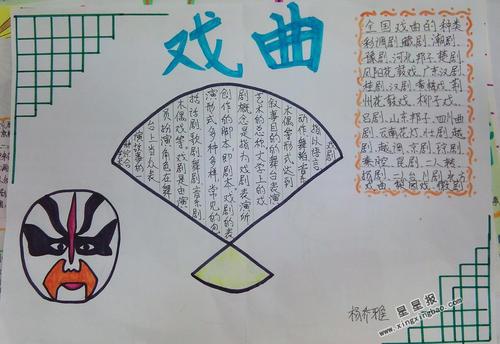 戏曲
戏剧
指以语言
动作舞蹈音乐
木偶等形式达到
叙事目的的舞台表演
艺术的总称文学上的戏
剧概念是指为戏剧表演所
创作的脚本，即剧本。戏剧的表
演形式多种多样，常见的包
括话剧歌剧舞剧音乐剧
木偶戏等。戏剧是由演
员扮演角色在舞
台上当众表
全国戏曲的种类
彩调剧、藏剧、潮剧、
豫剧、河北梆子、楚剧、
凤阳花鼓戏、广东汉剧、
桂剧、汉剧、黄梅戏、荆
州花鼓戏、柳子戏、
吕剧、山东梆子、四川曲
剧、云南花灯、壮剧、越
剧、越调、京剧、评剧、
秦腔、昆剧、二人台、
扬剧、二人台、川剧、北方
杨乔雅
星星报
www.xingxingbao.com